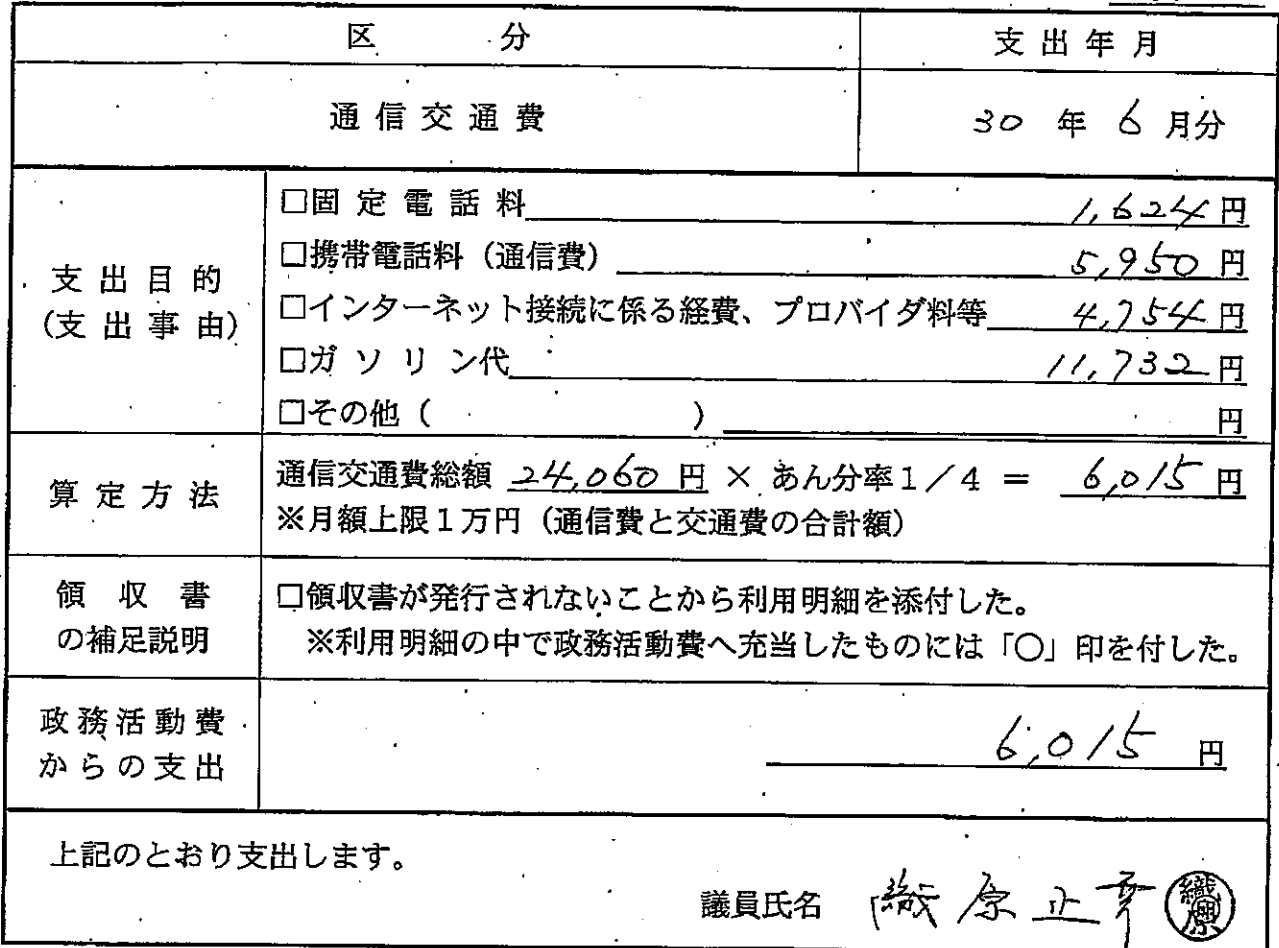 区 分 支出年月
通信交通費 30 年 6 月分
支出目的
(支出事由)
□固定電話料 1,624 円
□携帯電話料(通信費) 5,950 円
□インターネット接続に係る経費、プロバイダ料等 4,754 円
□ガソリン代 11,732 円
□その他( ) 円
算定方法
通信交通費総額 24,060 円 × あん分率1/4 = 6,015 円
※月額上限1万円(通信費と交通費の合計額)
領収書
の補足説明
□領収書が発行されないことから利用明細を添付した。
※利用明細の中で政務活動費へ充当したものには「○」印を付した。
政務活動費
からの支出
6,015 円
上記のとおり支出します。
議員氏名 織原正幸 織原